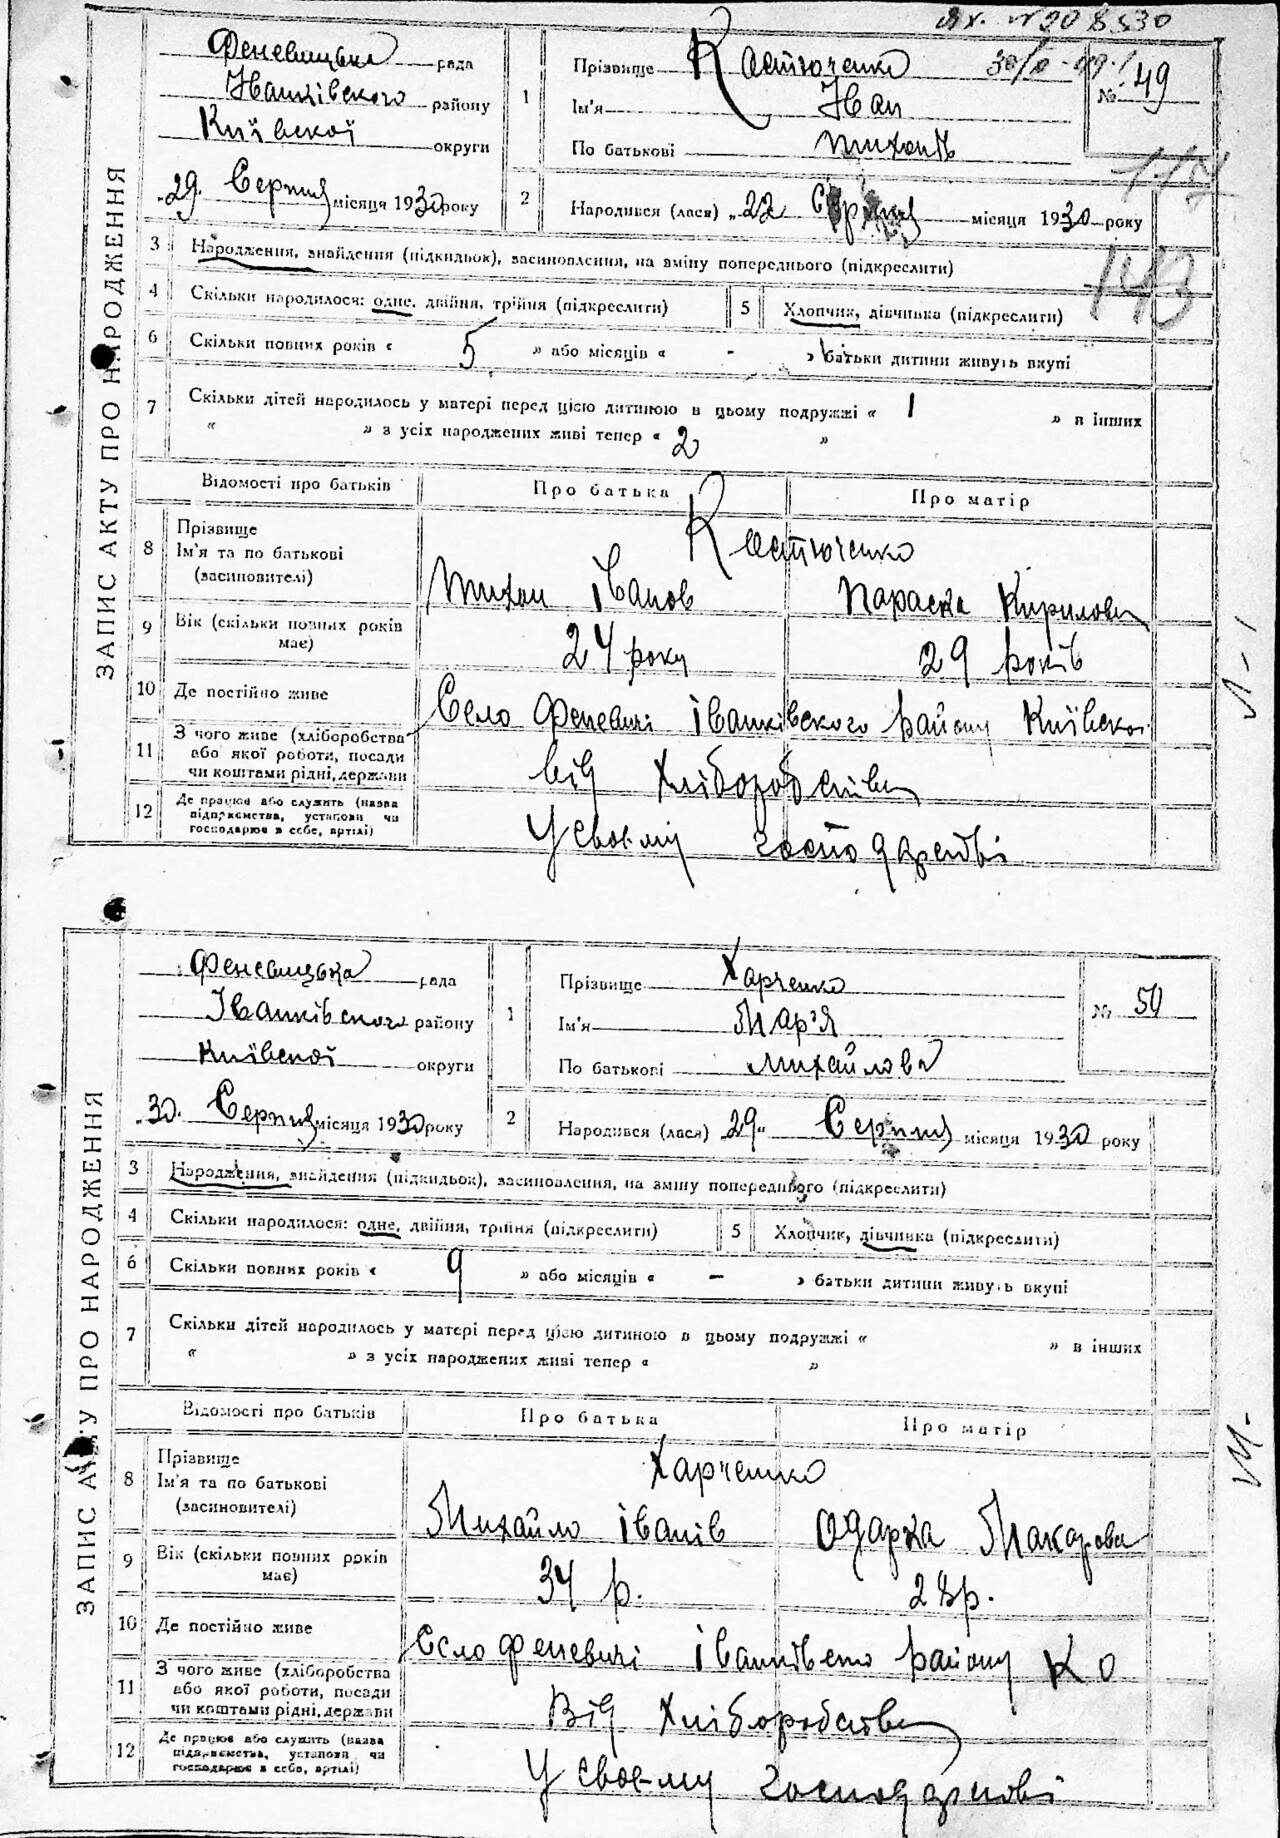 Феневицька рада
Іванківського району
Київської округи
29. Серпня місяця 1930 року
1
Прізвище Костюченко
Ім'я Іван
По батькові Тихонів
№ 49
2
Народився (лася) „22 Серпня місяця 1930 року
ЗАПИС АКТУ ПРО НАРОДЖЕННЯ
3 Народження, знайдення (підкидьок), засиновлення, на зміну попереднього (підкреслити)
143
4 Скільки народилося: одне, двійня, трійня (підкреслити) 5 Хлопчик, дівчинка (підкреслити)
6 Скільки повних років « 5 » або місяців « - » батьки дитини живуть вкупі
7 Скільки дітей народилось у матері перед цією дитиною в цьому подружжі « 1 » в інших
« » з усіх народжених живі тепер « 2 »
Відомості про батьків Про батька Про матір
8 Прізвище
Ім'я та по батькові
(засиновителі)
Костюченко
Тихон Іванов Параска Кирилова
9 Вік (скільки повних років має) 24 року 29 років
10 Де постійно живе Село Феневичі Іванківского району Київскоі
11 З чого живе (хліборобства або якої роботи, посади чи коштами рідні, держави від хліборобства
12 Де працює або служить (назва підприємства, установи чи господарює в себе, артілі) У своєму господарстві
Феневицька рада
Іванківского району
Київскоі округи
30. Серпня місяця 1930 року
1
Прізвище Харченко
Ім'я Мар'я
По батькові Михайлова
№ 50
2
Народився (лася) 29" Серпня місяця 1930 року
ЗАПИС АКТУ ПРО НАРОДЖЕННЯ
3 Народження, знайдення (підкидьок), засиновлення, на зміну попереднього (підкреслити)
4 Скільки народилося: одне, двійня, трійня (підкреслити) 5 Хлопчик, дівчинка (підкреслити)
6 Скільки повних років « 9 » або місяців « - » батьки дитини живуть вкупі
7 Скільки дітей народилось у матері перед цією дитиною в цьому подружжі « » в інших
« » з усіх народжених живі тепер « »
Відомості про батьків Про батька Про матір
8 Прізвище
Ім'я та по батькові
(засиновителі)
Харченко
Михайло Іванів Одарка Макарова
9 Вік (скільки повних років має) 34 р. 28р.
10 Де постійно живе Село Феневичі Іванківско району К О
11 З чого живе (хліборобства або якої роботи, посади чи коштами рідні, держави Від Хліборобства
12 Де працює або служить (назва підприємства, установи чи господарює в себе, артілі) У своєму господарстві